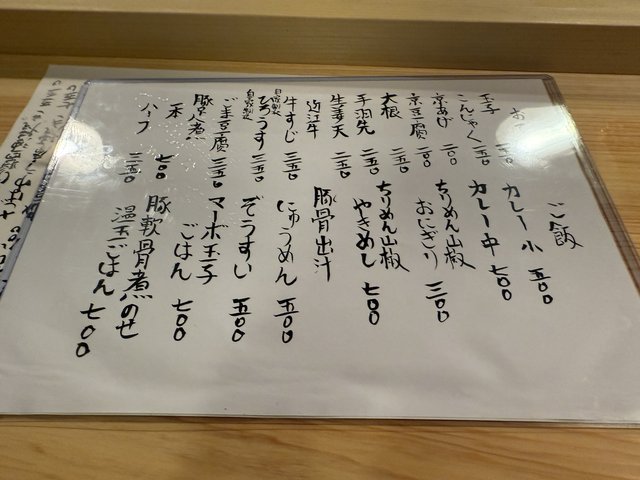 お
玉子
こんにゃく 二五〇
京あげ 二〇〇
京豆腐 二〇〇
大根 二五〇
手羽先 二五〇
生姜天 二五〇
近江牛
牛すじ 三五〇
自家製
ひろうす 三五〇
ごま豆腐 三五〇
豚角煮
一本 七〇〇
ハーフ 三五〇
ご飯
カレー小 五〇〇
カレー中 七〇〇
ちりめん山椒
おにぎり 三〇〇
ちりめん山椒
やきめし 七〇〇
豚骨出汁
にゅうめん 五〇〇
ぞうすい 五〇〇
マーボ玉子
ごはん 七〇〇
豚軟骨煮のせ
温玉ごはん 七〇〇